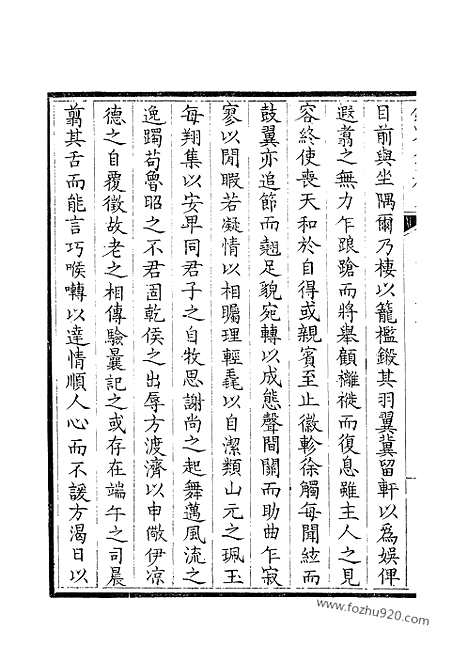 目前與坐隅爾乃棲以籠檻鍛其羽翼冀留軒以為娛俾
遐翥之無力乍踉蹌而將舉顧襳褷而復息雖主人之見
容終使喪天和於自得或親賓至止徽軫徐觸每聞絃而
鼓翼亦追節而翹足貌宛轉以成態聲間關而助曲乍寂
寥以閒暇若凝情以相矚理輕毳以自潔類山元之珮玉
每翔集以安卑同君子之自牧思謝尚之起舞邁風流之
逸躅茍魯昭之不君固乾侯之出辱方渡濟以申儆伊凉
德之自覆徵故老之相傳驗曩記之或存在端午之司晨
翦其舌而能言巧喉囀以達情順人心而不諼方渴日以
www.fozhu920.com